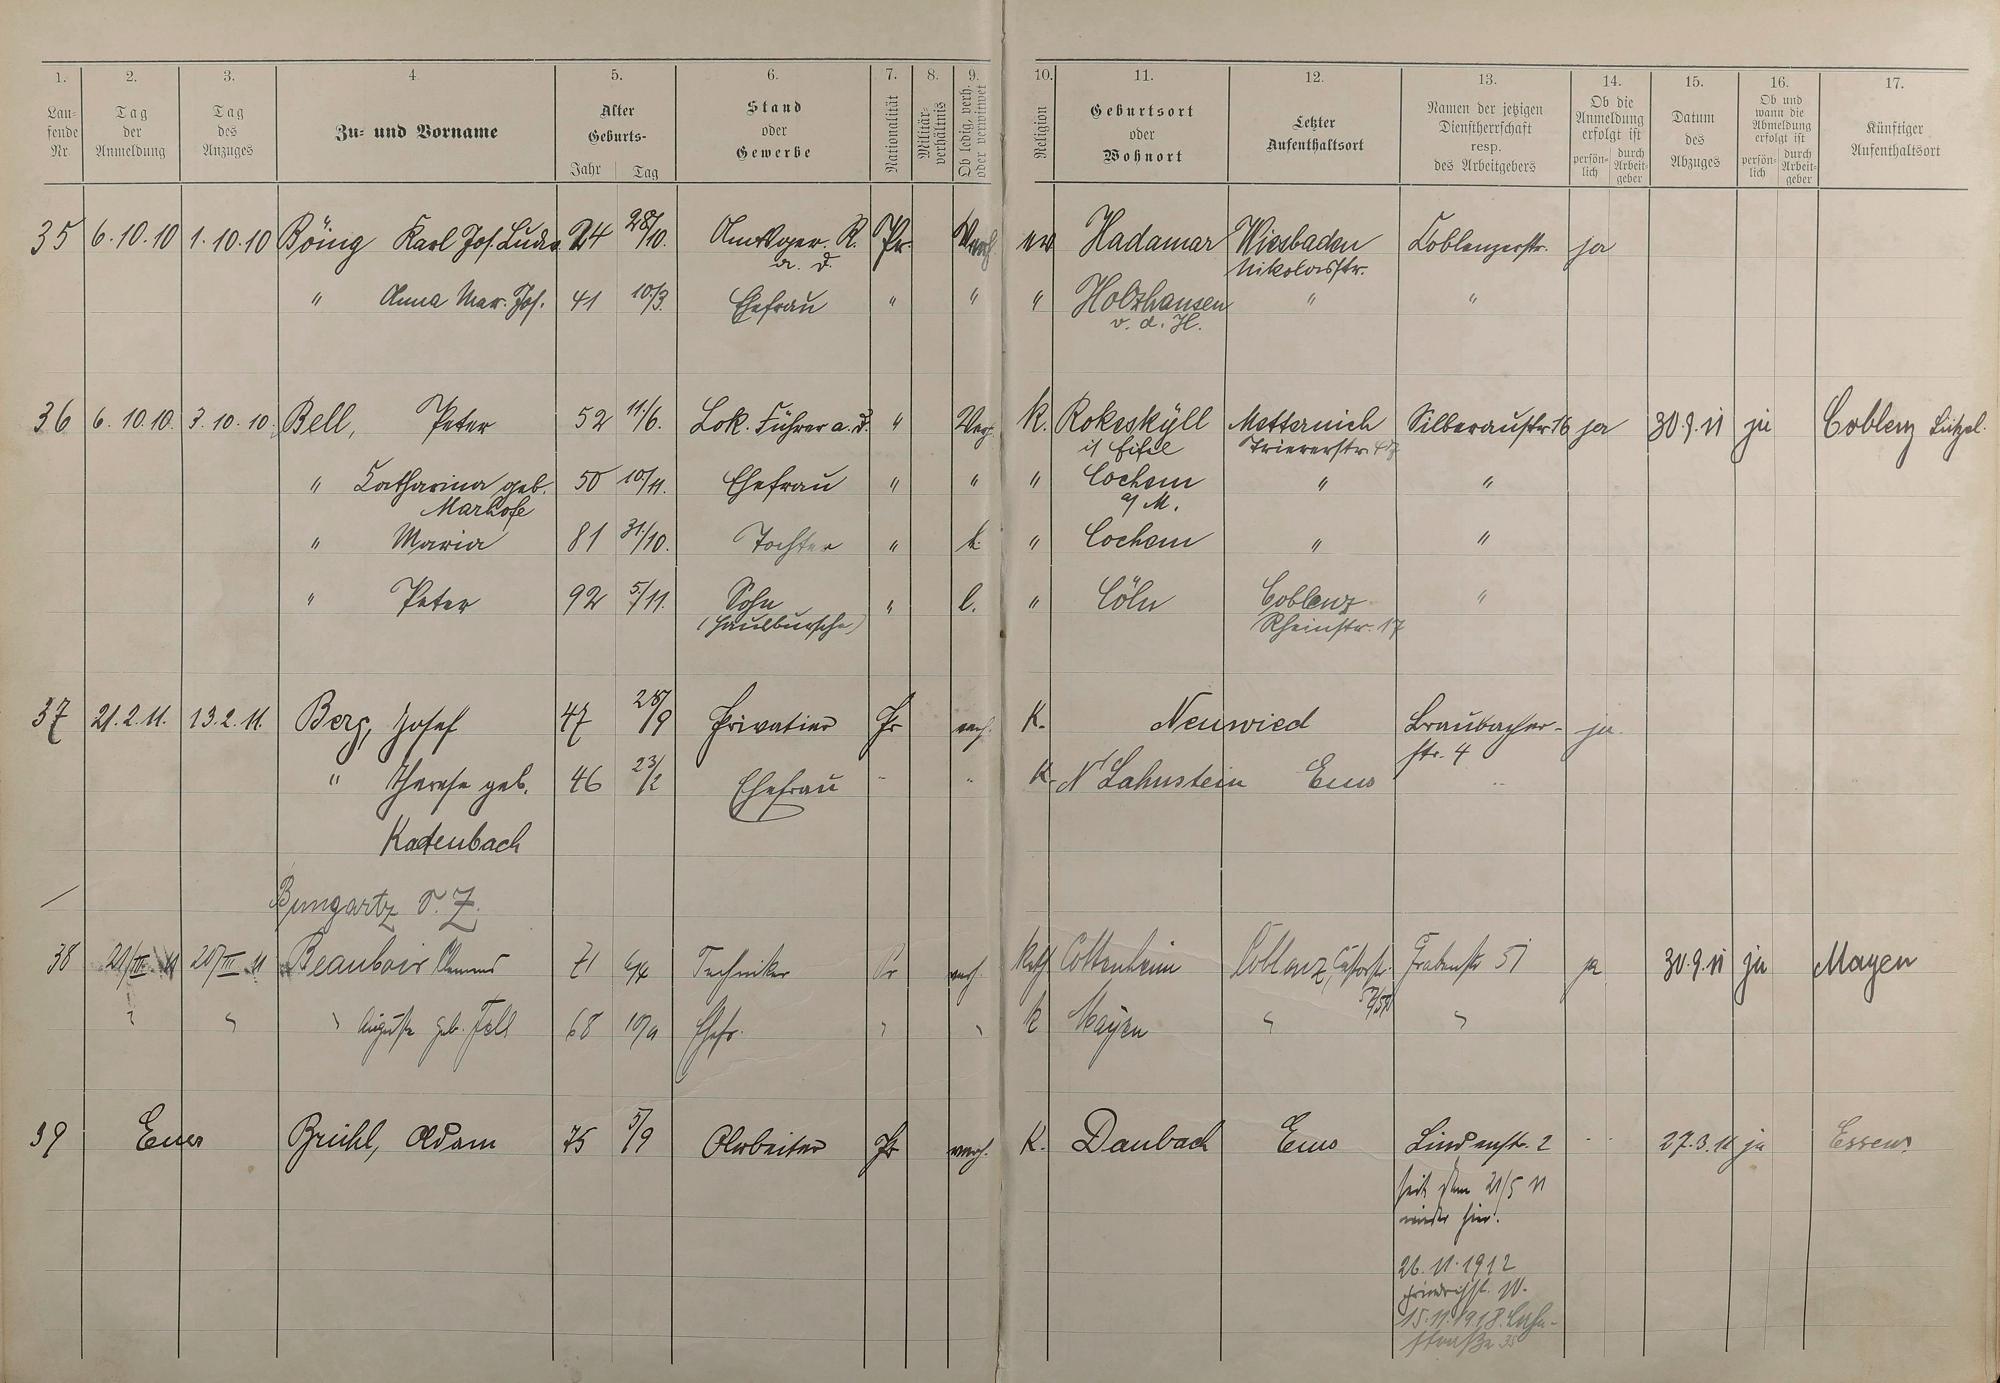 1. 2. 3. 4. 5. 6. 7. 8. 9. 10. 11. 12. 13. 14. 15. 16. 17.
Lau-
fende
Nr.
Tag
der
Anmeldung
Tag
des
Anzuges
Zu- und Vorname
Alter
Geburts-
Jahr Tag
Stand
oder
Gewerbe
Nationalität
Militär-
verhältnis
Ob ledig, verh.
oder verwitwet
Religion
Geburtsort
oder
Wohnort
Letzter
Aufenthaltsort
Namen der jetzigen
Dienstherrschaft
resp.
des Arbeitgebers
Ob die
Anmeldung
erfolgt ist
persön-
lich
durch
Arbeit-
geber
Datum
des
Abzuges
Ob und
wann die
Abmeldung
erfolgt ist
persön-
lich
durch
Arbeit-
geber
Künftiger
Aufenthaltsort
35 6.10.10 1.10.10 Böing Karl Jos. 28/10. Pr. Verh. ev Hadamar Wiesbaden Coblenzerstr. ja
a. D. Nikolasstr.
" Anna Mar. Jos. 41 10./3. Ehefrau " " " Holzhausen " "
v. d. H.
36 6.10.10. 3.10.10. Bell, Peter 52 11./6. Lok. Führer a. D. " k. Rokeskyll Metternich Silberaustr. 16 ja 30.9.11 ja Coblenz Lützel.
Eifel Triererstr.
" Catharina geb. 50 10/11. Ehefrau " " " Cochem " "
a/M.
" Maria 81 31/10. Tochter " " Cochem " "
" Peter 92 5/11. Sohn " l. " Cöln Coblenz "
Rheinstr. 17
37 21.2.11. 13.2.11. Berg, Josef 47 28/9 Privatier Pr verh. K. Neuwied Braubacher- ja.
str. 4
" Therese geb. 46 23/2 Ehefrau " " K. N Lahnstein Ems "
Kadenbach
Bungartz s. Z.
38 Beauboir Clemens 71 Techniker Pr verh. Kath Cottenheim Coblenz, Castorstr. Grabenstr 51 ja 30.9.11 ja Mayen
" Auguste geb. Fell 68 Ehefr. " " k Mayen " "
39 Emser Brühl, Adam 75 5/9 Arbeiter Pr verh. K. Daubach Ems Lindenstr. 2 27.3.11 ja Essen.
seit dem 21/5 11
wieder hier.
26.11.1912
15.11.1918. Lahn-
straße 35